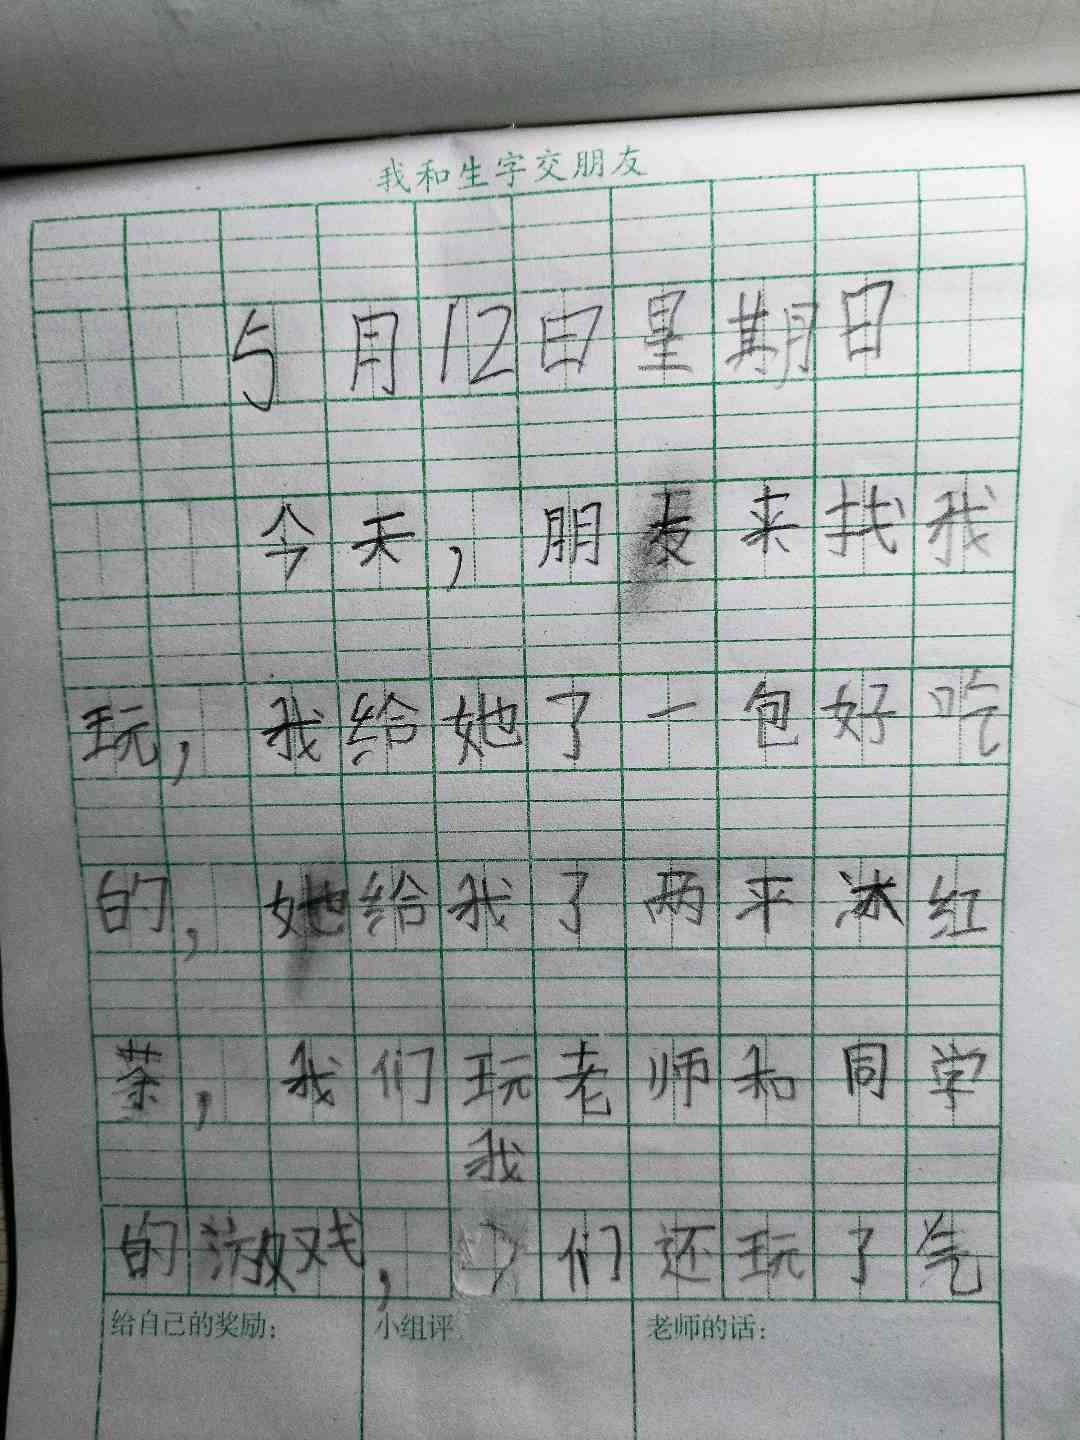 我和生字交朋友
5月12日星期日
今天，朋友来找我
玩，我给她了一包好吃
的，她给我了两平冰红
茶，我们玩老师和同学
我
的游戏，们还玩了气
给自己的奖励：
小组评
老师的话：